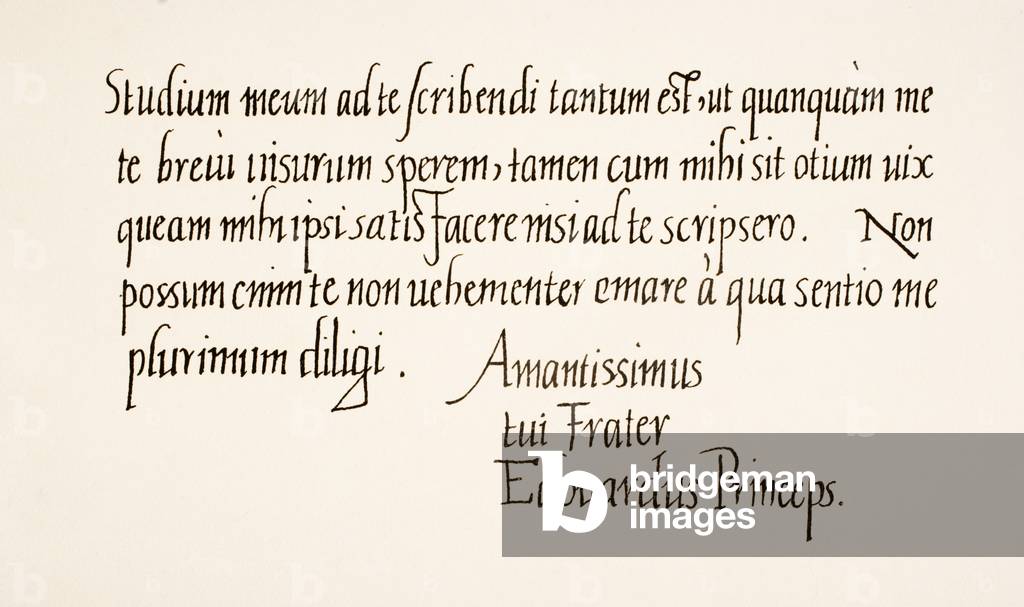 Studium meum ad te scribendi tantum est, ut quanquàm me
te breui uisurum sperem, tamen cum mihi sit otium uix
queam mihi ipsi satis facere nisi ad te scripsero. Non
possum enim te non uehementer amare à qua sentio me
plurimum diligi.
Amantissimus
tui Frater
Edouardus Princeps.
bridgeman
images